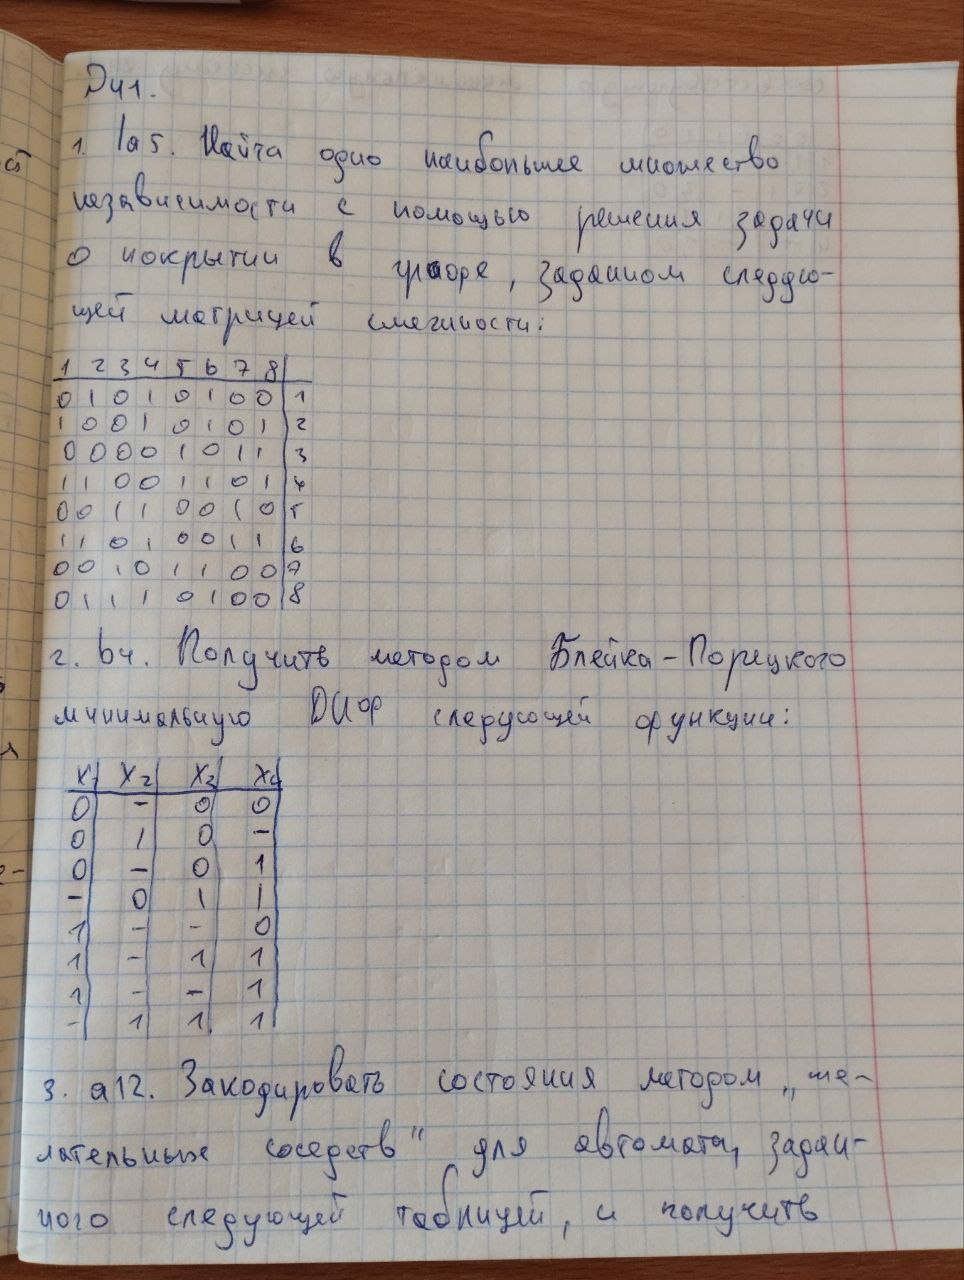 ДЧ1.
1. 1а5. Найти одно наибольшее множество
независимости с помощью решения задачи
о покрытии в графе, заданном следую-
щей матрицей смежности:
1 2 3 4 5 6 7 8
0 1 0 1 0 1 0 0 1
1 0 0 1 0 1 0 1 2
0 0 0 0 1 0 1 1 3
1 1 0 0 1 1 0 1 4
0 0 1 1 0 0 1 0 5
1 1 0 1 0 0 1 1 6
0 0 1 0 1 1 0 0 7
0 1 1 1 0 1 0 0 8
2. b4. Получить методом Блейка-Порецкого
минимальную ДНФ следующей функции:
X1 X2 X3 X4
0 - 0 0
0 1 0 -
0 - 0 1
- 0 1 1
1 - - 0
1 - 1 1
1 - - 1
- 1 1 1
3. а12. Закодировать состояния методом „же-
лательных соседств" для автомата, задан-
ного следующей таблицей, и получить